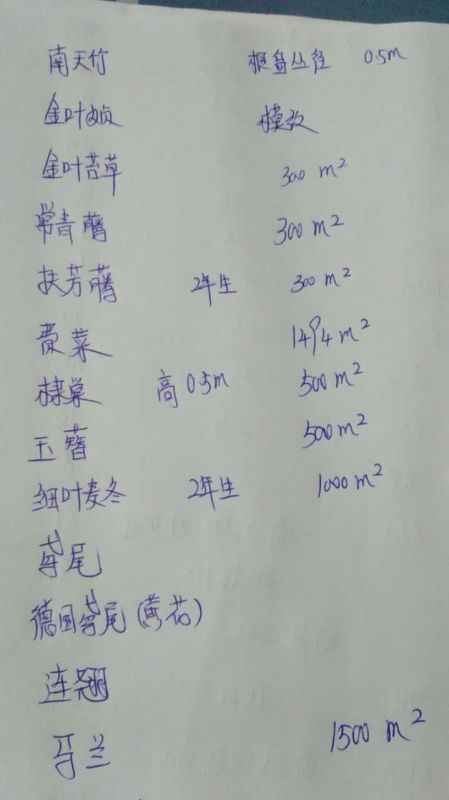 南天竹 根盘丛径 0.5m
金叶女贞 模纹
金叶苔草 300 m²
常青藤 300 m²
扶芳藤 2年生 300 m²
费菜 1494 m²
棣棠 高0.5m 500 m²
玉簪 500 m²
细叶麦冬 2年生 1000 m²
鸢尾
德国鸢尾(黄花)
连翘
马兰 1500 m²